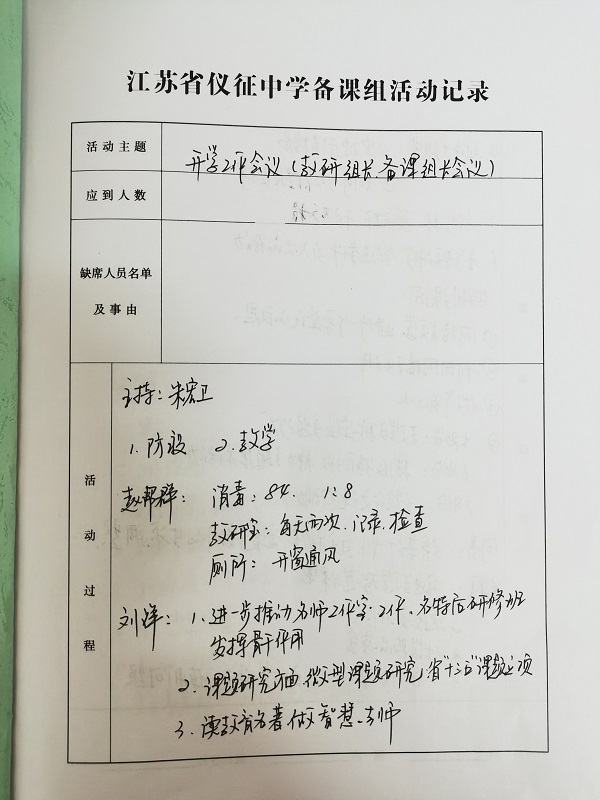 江苏省仪征中学备课组活动记录
活动主题
开学工作会议（教研组长备课组长会议）
应到人数
缺席人员名单
及事由
活动过程
主持：朱宏卫
1、防役 2、教学
赵帮群：消毒：84. 1:8
教研室：每天两次、记录、检查
厕所：开窗通风
刘洋：1、进一步推动名师工作室工作、名特后研修班
发挥骨干作用
2、课题研究方面 微型课题研究，省“十三五”课题立项
3、读教育名著 做智慧教师